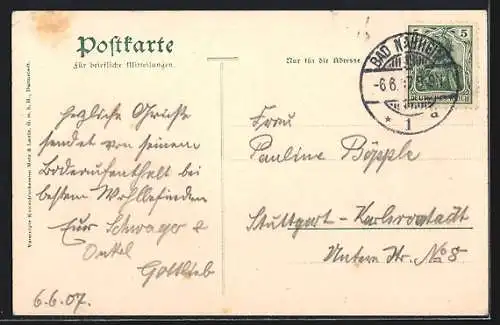 Postkarte
Für briefliche Mitteilungen.
Nur für die Adresse.
BAD NAUHEIM
-6.6.
* 1 a
5
DEUTSCHES REICH
Herzliche Grüße
sendet von seinem
Badeaufenthalt bei
bestem Wohlbefinden
Euer Schwager &
Onkel
Gottlieb
6.6.07.
Frau
Pauline Böpple
Stuttgart-Karlsvorstadt
Untere Str. No 8